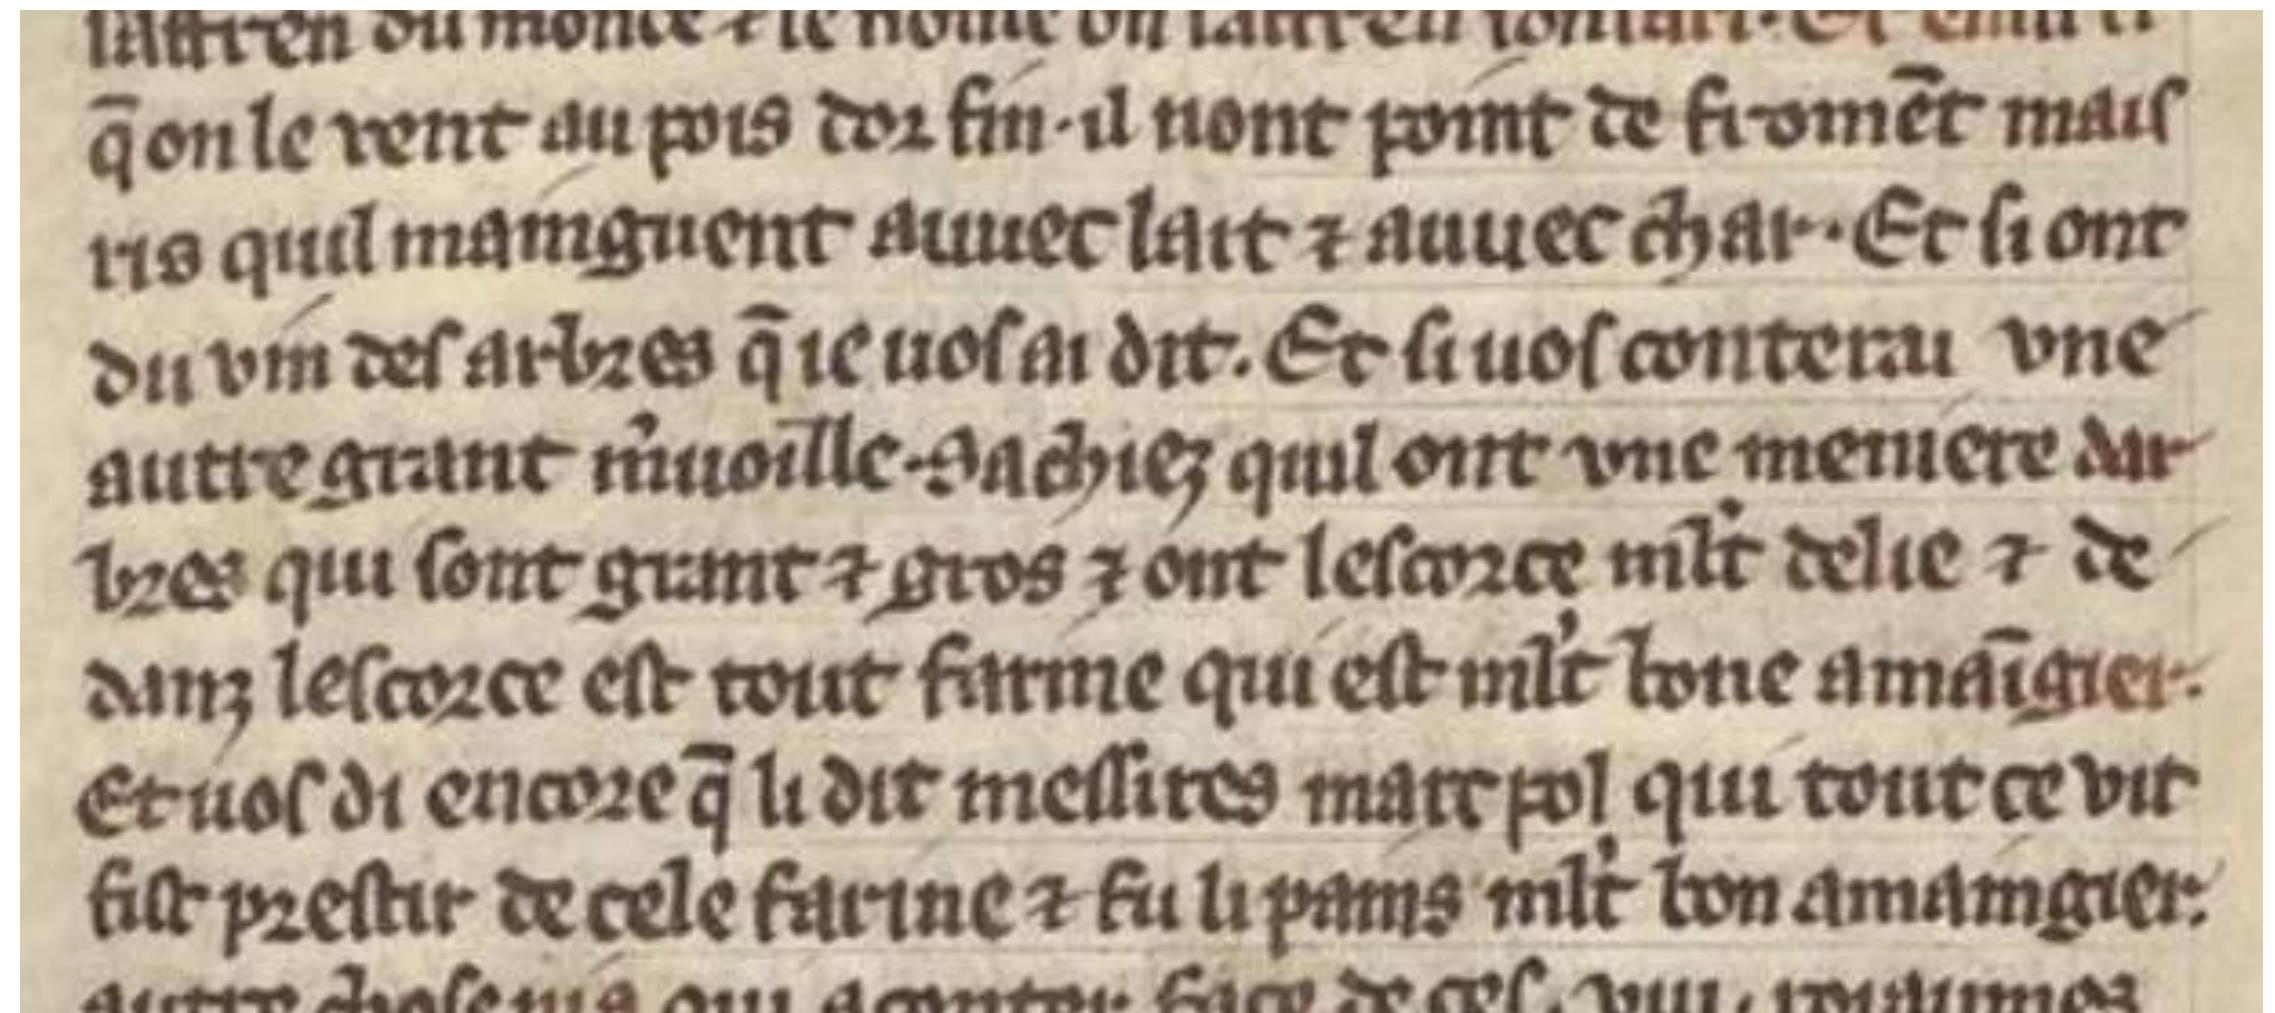 q̄ on le vent au pois dor fin · il nont point de fromēt mais
ris quil mainguent auuec lait ⁊ auuec char · Et si ont
du vin des arbres q̄ ie uos ai dit. Et si uos conterai vne
autre grant m̓uoille · Sachiez quil ont vne meniere dar
bres qui sont grant ⁊ gros ⁊ ont lescorce ml̓t delie ⁊ de
danz lescorce est tout farine qui est ml̓t bone amāigier.
Et uos di encore q̄ li dit messires marc pol qui tout ce vit
fist prestir de cele farine ⁊ fu li pains ml̓t bon amaingier.
autre chose nia qui aconter face de ces . viii . roiaumes